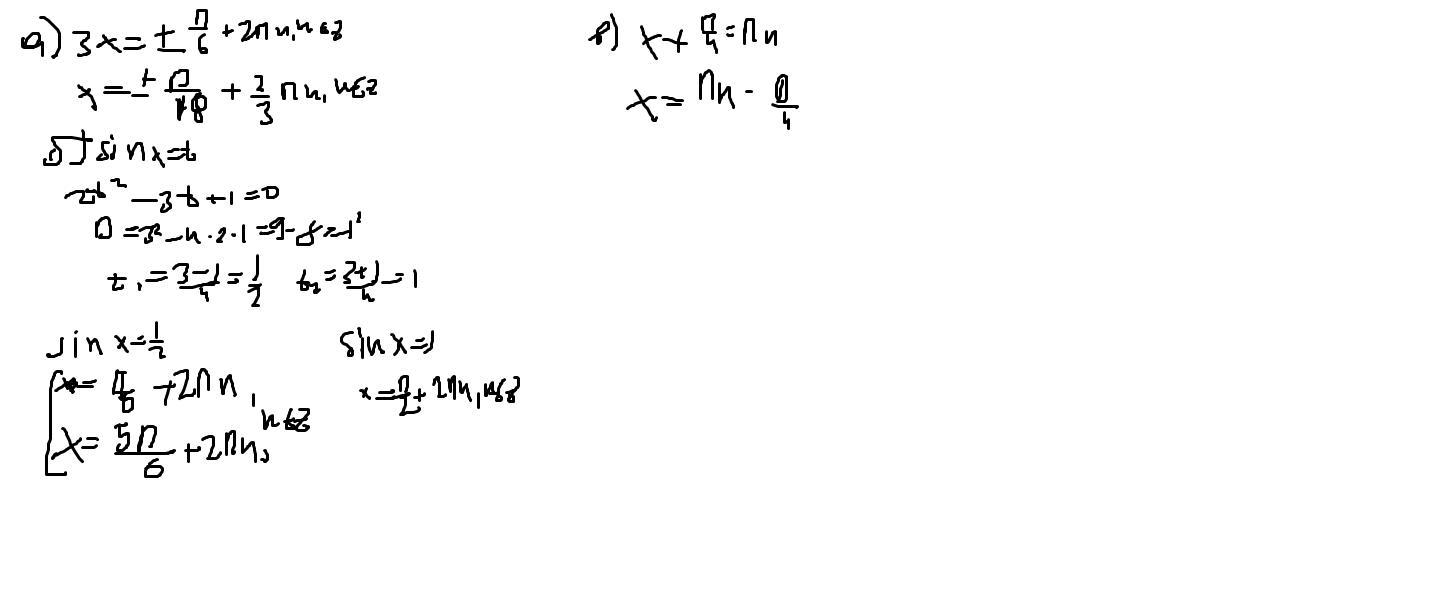 а) 3x = ± π/6 + 2πn, n∈Z
x = ± π/18 + 2/3 πn, n∈Z
б) sin x = t
2t² - 3t + 1 = 0
D = 3² - 4·2·1 = 9 - 8 = 1²
t₁ = (3-1)/4 = 1/2 t₂ = (3+1)/4 = 1
sin x = 1/2 sin x = 1
x = π/6 + 2πn, n∈Z x = π/2 + 2πn, n∈Z
x = 5π/6 + 2πn,
в) x + π/4 = πn
x = πn - π/4